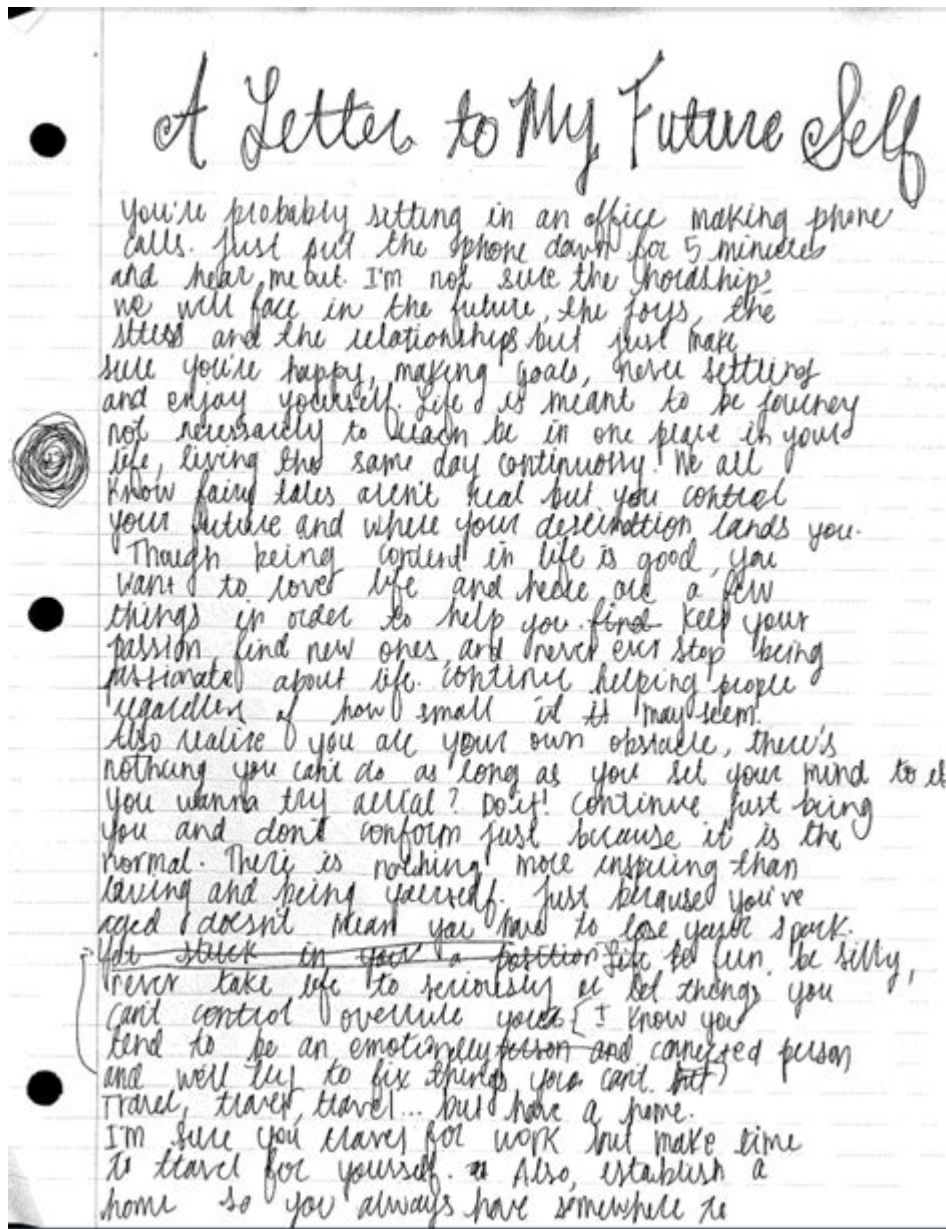 A Letter to My Future Self
You're probably setting in an office making phone
calls. Just put the phone down for 5 minutes
and hear me out. I'm not sure the hardships
we will face in the future, the joys, the
stress and the relationships but just make
sure you're happy, making goals, never settling
and enjoy yourself. Life is meant to be journey
not necessarily to be in one place in your
life, living the same day continuosly. We all
know fairy tales aren't real but you control
your future and where your destination lands you.
Though being content in life is good, you
want to love life and here are a few
things in order to help you find keep your
passion find new ones and never ever stop being
passionate about life. continue helping people
regardless of how small it may seem.
Also realize you are your own obstacle, there's
nothing you can't do as long as you set your mind to it
you wanna try aerial? Do it! continue just being
you and don't conform just because it is the
normal. There is nothing more inspiring than
loving and being yourself. Just because you've
aged doesn't mean you have to lose your spark.
stuck in your a position be fun, be silly,
never take life to seriously or let things you
can't control overrule [I know you
tend to be an emotionally person and connected person
and we'll try to fix things you can't but
Travel, travel, travel... but have a home.
I'm sure you travel for work but make time
to travel for yourself. Also, establish a
home so you always have somewhere to